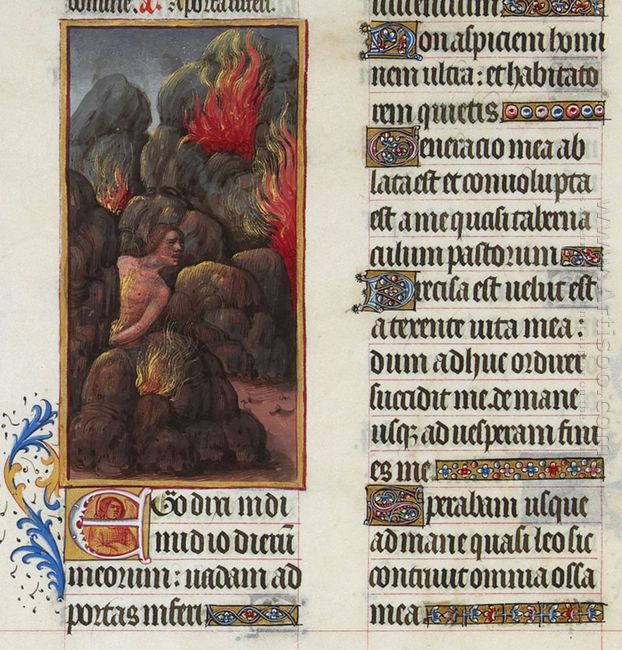 domine. A. A porta inferi.
Ego dixi in di
midio dierū
meorum: uadam ad
portas inferi
uiuencium
Non aspiciem homi
nem ultra: et habitato
rem quietis
Generacio mea ab
lata est et conuolupta
est a me quasi taberna
culum pastorum
Precisa est uelut est
a texente uita mea:
dum adhuc ordirer
succidit me. de mane
usqꝫ ad uesperam fini
es me
Sperabam usque
ad mane quasi leo sic
contriuit omnia ossa
mea